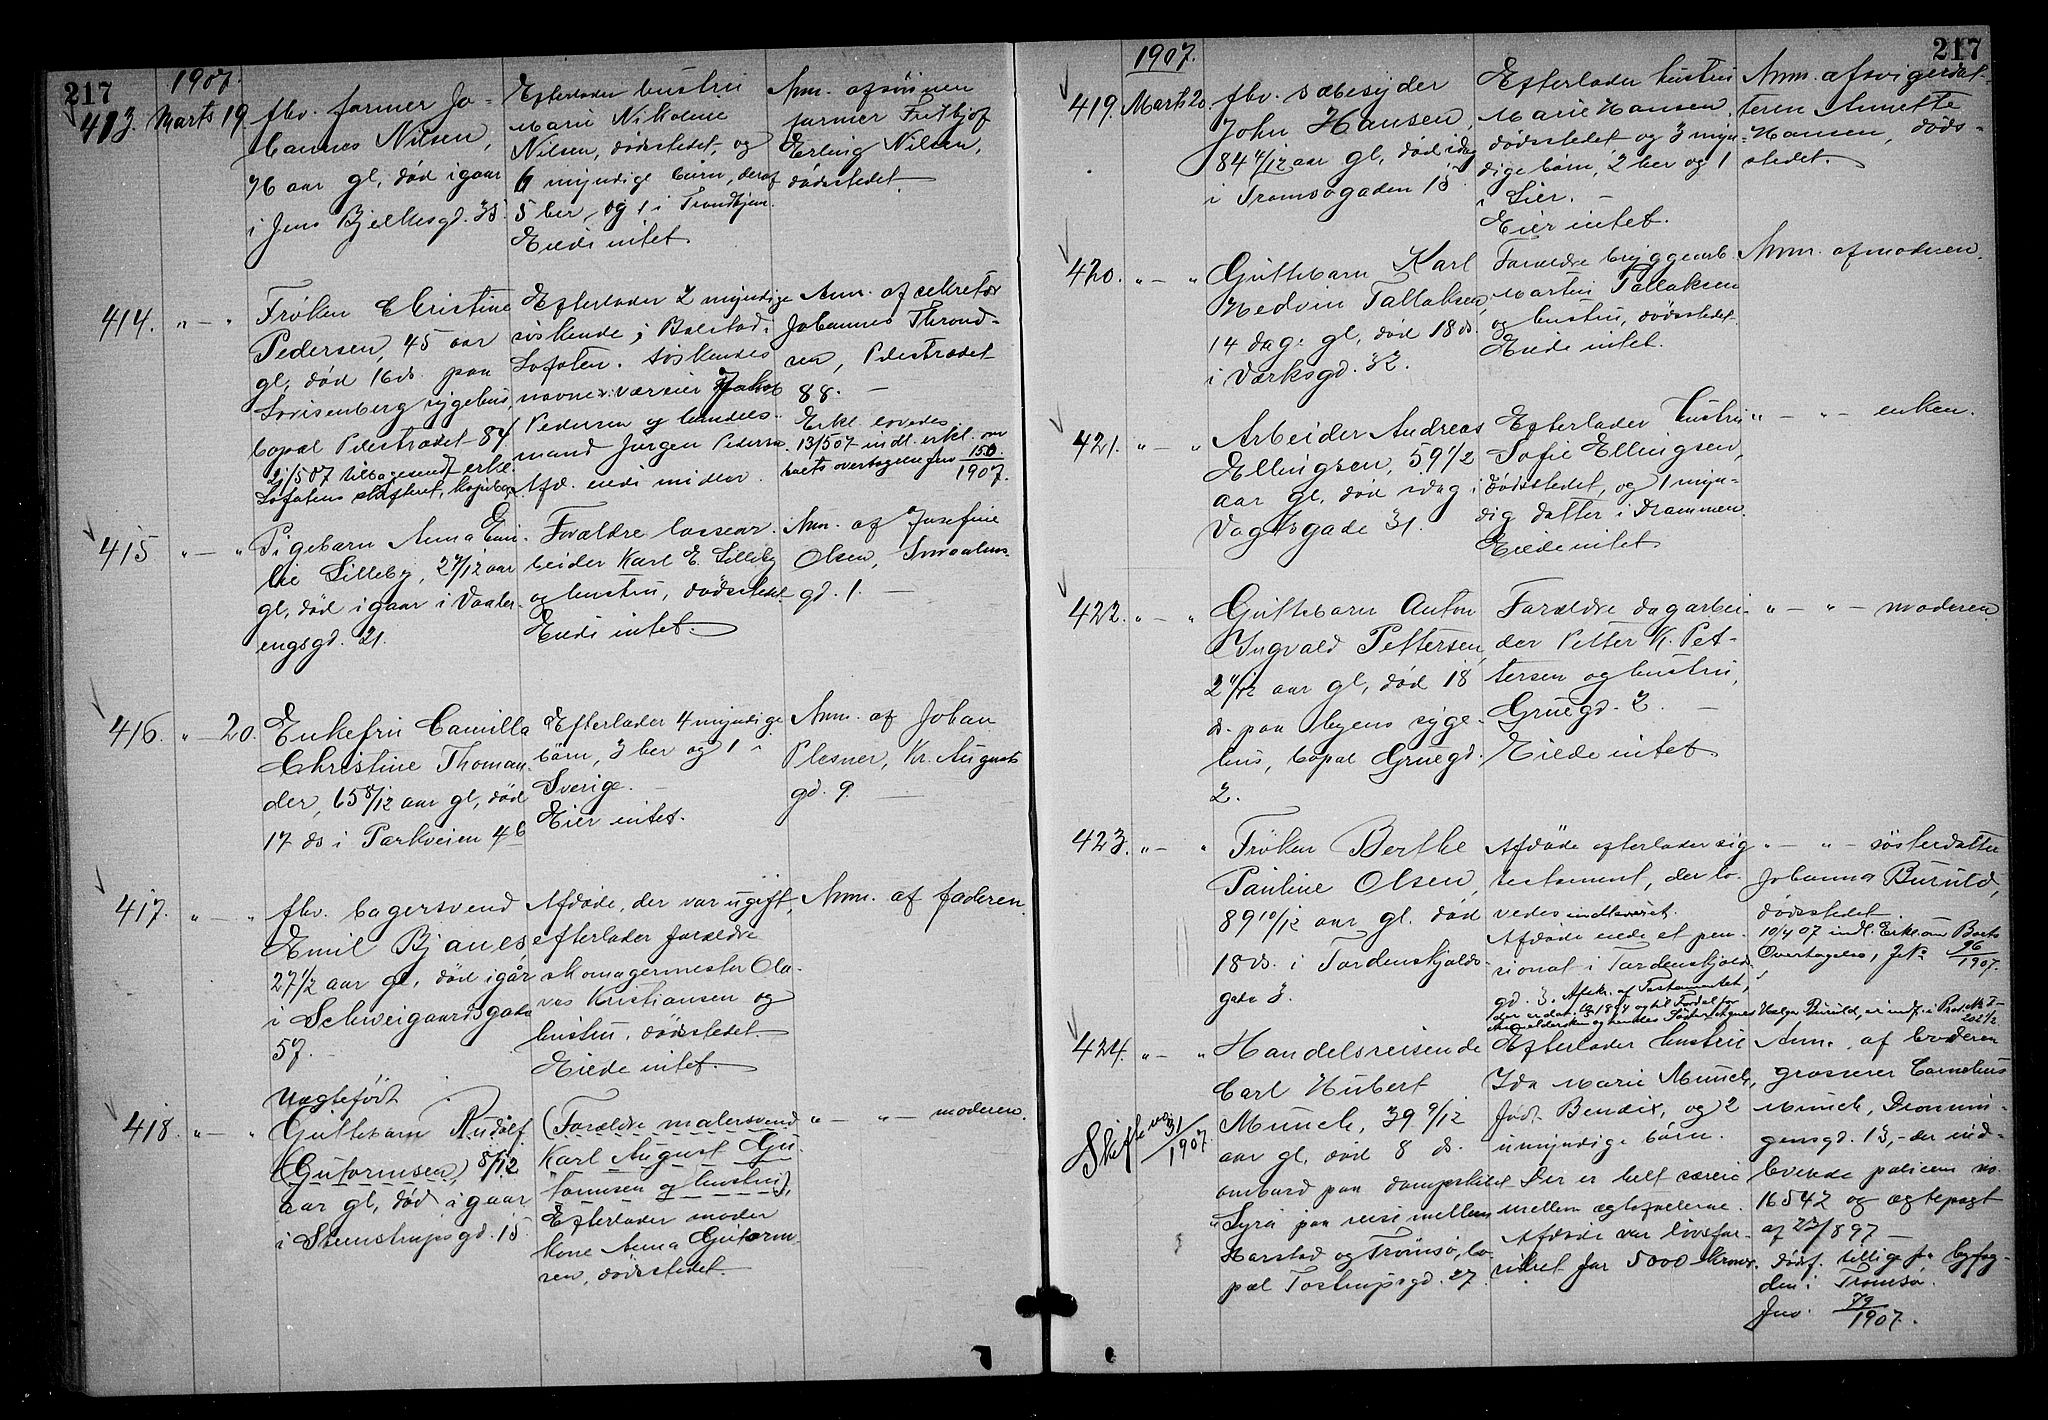 217
1907.
413. Marts 19. fhv. former Jo-
hannes Nilsen,
76 aar gl, død igaar
i Jens Bjelkesgd. 35
Efterlader hustru
Marie Nikoline
Nilsen, dødsstedet, og
6 myndige børn, deraf
5 her, og 1 i Trondhjem.
Eiede intet
Anm. af sönnen
former Fritthjof
Erling Nilsen,
dødsstedet.
414. " — " Frøken Christine
Pedersen, 45 aar
gl, død 16 ds. paa
Lovisenberg sygehus,
bopæl Pilestrædet 84
2/5 07 tilbagesendt erkl.
Lofotens skifteret,
Efterlader 2 myndige
söskende i Balstad i
Lofoten. Söskendes
navne: væreier Jakob
Pedersen og handels-
mand Jørgen Pedersen
Afd. eiede midler.
Anm. af sekretær
Johannes Thrond-
sen, Pilestrædet
88. —
Erkl. lovedes.
13/5 07 indl. erkl. om
boets overtagelse Jno 150/1907.
415. " — " Pigebarn Anna Emi-
lie Lilleby, 2 7/12 aar
gl, død igaar i Vaaler-
engsgd. 21.
Forældre lossear-
beider Karl E. Lilleby
og hustru, dødsstedet.
Eiede intet.
Anm. af Josefine
Olsen, Smaalens-
gd. 1. —
416. " — 20. Enkefru Camilla
Christine Thoman-
der, 65 8/12 aar gl, død
17 ds i Parkveien 4b
Efterlader 4 myndige
børn, 3 her og 1 i
Sverige. —
Eier intet.
Anm. af Johan
Plesner, Kr. Augusts
gd. 9. —
417. " — " fhv. bagersvend
Emil Bjanes,
27 1/2 aar gl, død igår
i Schweigaardsgade
57. —
Afdøde, der var ugift,
efterlader forældre
skomagermester Ola-
vus Kristiansen og
hustru, dødsstedet.
Eiede intet.
Anm. af faderen.
Uægtefødt
418. " — " Guttebarn Rudolf
(Guttormsen) 8/12
aar gl, død igaar
i Steenstrupsgd. 15
(Forældre malersvend
Karl August Gu-
tormsen og hustru),
Efterlader moder
kone Anna Guttorm-
sen, dødsstedet.
" — " — moderen.
217
1907.
419. Marts 20. fhv. sæbesyder
John Hansen,
84 4/12 aar gl, død idag
i Tromsøgaden 15
Efterlader hustru
Marie Hansen,
dødsstedet og 3 myn-
dige børn, 2 her og 1
i Lier. —
Eier intet.
Anm. af svigerdat-
teren Annette
Hansen, døds-
stedet.
420. " — " Guttebarn Karl
Hedvin Tallaksen,
14 dage gl, død 18 ds.
i Værksgd. 32.
Forældre bryggearb.
Martin Tallaksen
og hustru, dødsstedet.
Eiede intet.
Anm. af moderen.
421. " — " Arbeider Andreas
Ellingsen, 59 1/2
aar gl, død idag i
Vogtsgade 31.
Efterlader hustru
Sofie Ellingsen,
dødsstedet, og 1 myn-
dig datter i Drammen.
Eiede intet
" — " — enken.
422. " — " Guttebarn Anton
Ingvald Pettersen,
2 11/12 aar gl, død 18
ds. paa byens syge-
hus, bopæl Gruegd.
2.
Forældre dagarbei-
der Petter K. Pet-
tersen og hustru,
Gruegd. 2. —
Eiede intet
" — " — moderen
423. " — " Frøken Berthe
Pauline Olsen,
89 10/12 aar gl. død
18 ds. i Tordenskjolds-
gade 3.
Afdøde efterlader sig
testament, der lo-
vedes indleveret.
Afdøde eiede et pen-
sionat i Tordenskjolds-
gd. 3. Afskr. af Testamentet,
" — " — søsterdatter
Johanna Buruld,
dødsstedet
10/4 07 indl. Erkl. om Boets
Overtagelse, J.No 96/1907.
424. " — " Handelsreisende
Carl Hubert
Munch, 39 9/12
aar gl, død 8 ds.
ombord paa dampskibet
"Lyra paa reise mellem
Harstad og Tromsø, bo-
pæl Tostrupsgd. 27.
Skifte no 31/1907.
Efterlader hustru
Ida Marie Munch,
født Bendix, og 2
umyndige børn.
Der er helt særeie
mellem ægtefællerne.
Afdøde var livsfor-
sikret for 5000 Kroner.
Anm. af broderen
grosserer Cornelius
Munch, Dronnin-
gensgd. 13, - der ind-
leverede policen no
16542 og ægtepagt
af 23/8 97 —
dødsf. tillige fra byfog-
den i Tromsø.
Jno. 79/1907.